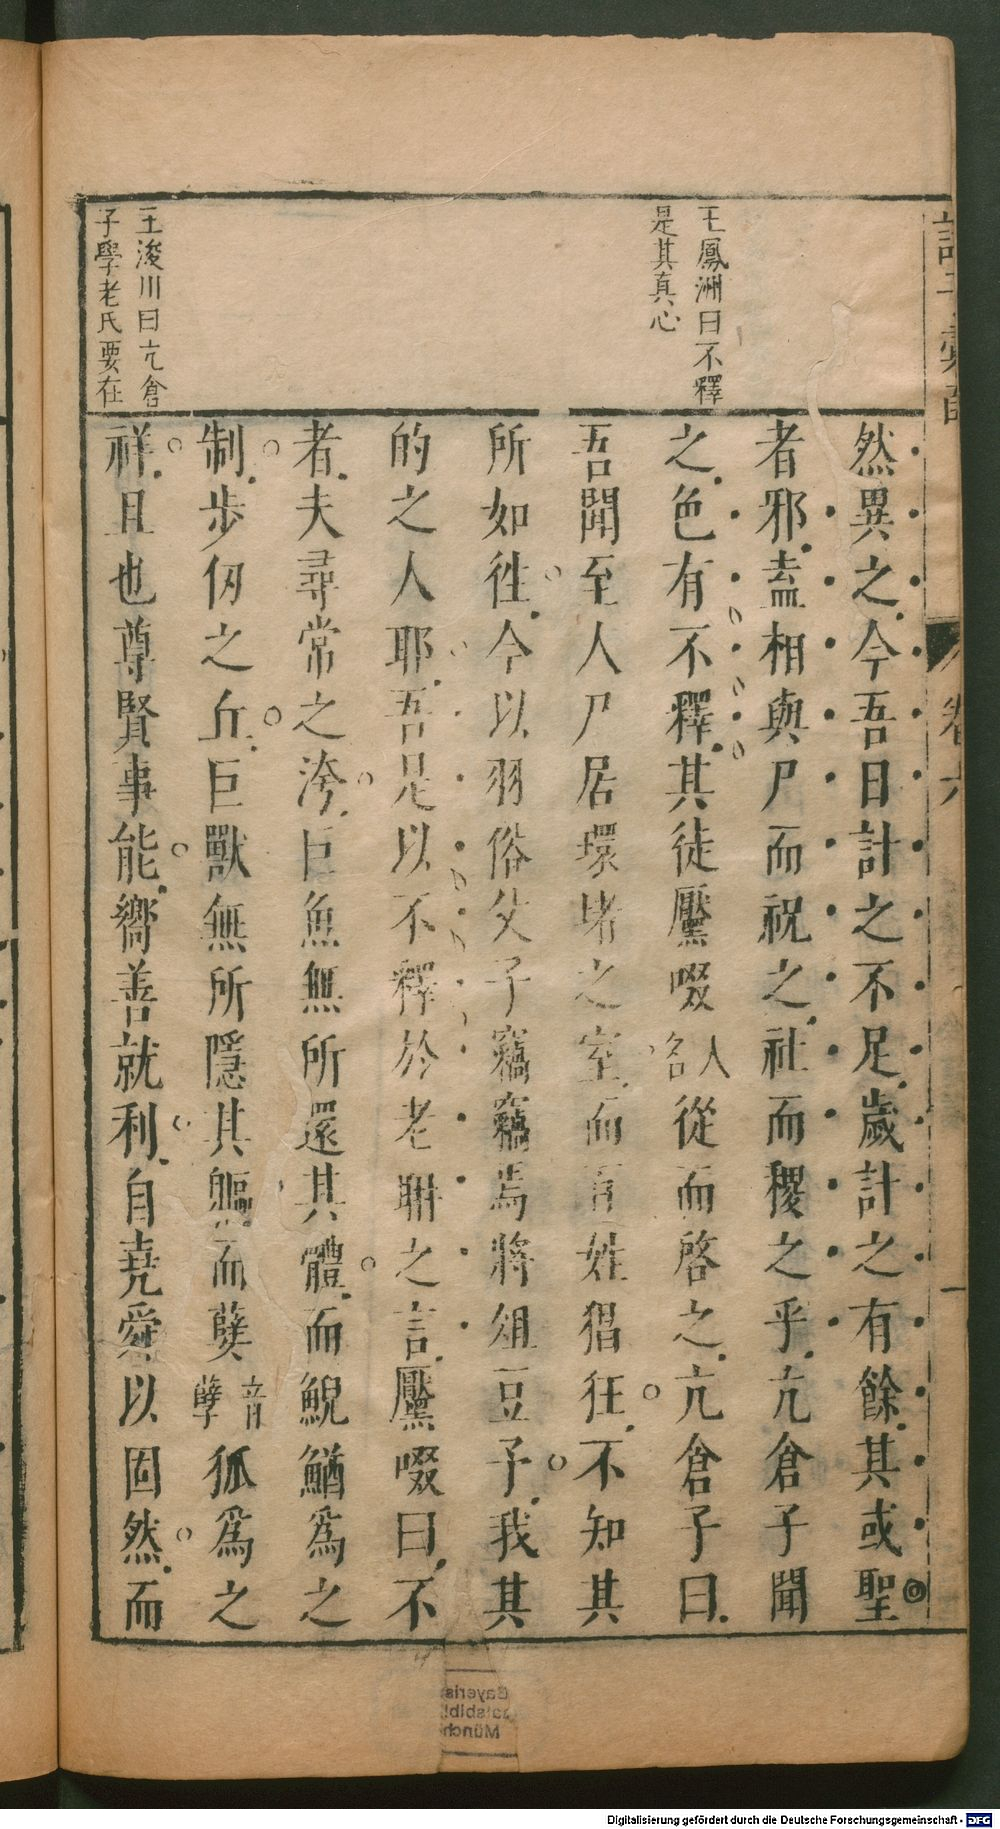 然異之今吾日計之不足歲計之有餘其或聖
者邪盍相與尸而祝之社而稷之乎亢倉子聞
之色有不釋其徒𪒠啜人名從而啓之亢倉子曰
吾聞至人尸居環堵之室而百姓猖狂不知其
所如徃今以羽俗父子竊竊焉將俎豆予我其
的之人耶吾是以不釋於老聃之言𪒠啜曰不
者夫尋常之洿巨魚無所還其體而鯢鰌爲之
制步仭之丘巨獸無所隱其軀而㜸音孽狐爲之
祥且也尊賢事能嚮善就利自堯舜以固然而
王鳳洲曰不釋
是其真心
王浚川曰亢倉
子學老氏要在
卷六
一
Digitalisierung gefördert durch die Deutsche Forschungsgemeinschaft - DFG